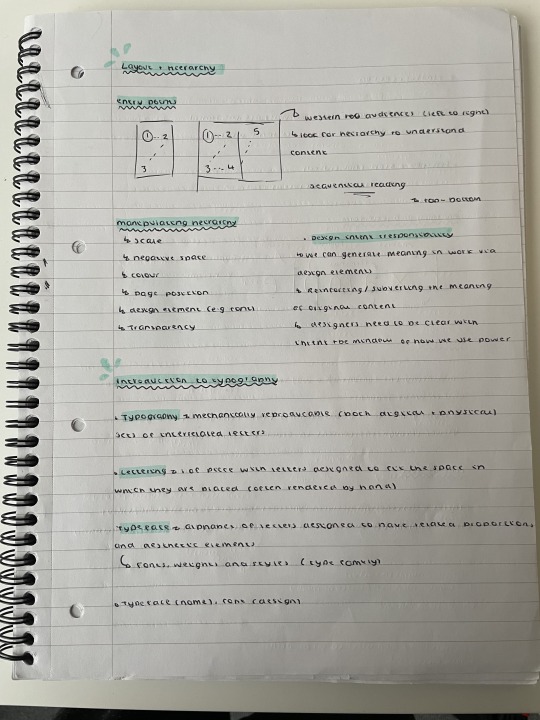 Layout + hierarchy
entry points
① ... 2
3
① ... 2 5
3 ... 4
↳ western audiences (left to right)
↳ look for heirarchy to understand
content
sequential reading
↳ top-bottom
manipulating heirarchy
↳ scale
↳ negative space
↳ colour
↳ page position
↳ design element (e.g font)
↳ Transparency
• Design intent + responsibility
↳ we can generate meaning in work via
design elements
↳ Reinforcing / subverting the meaning
of original content
↳ designers need to be clear with
intent + be mindful of how we use power
introduction to typography
• Typography = mechanically reproducable (both digital + physical)
sets of interrelated letters
• Lettering = 1 of piece with letters designed to fit the space in
which they are placed (often rendered by hand)
typeface = alphabet of letters designed to have related proportions
and aesthetic elements
↳ fonts, weights and styles (type family)
• Typeface (name), font (design)